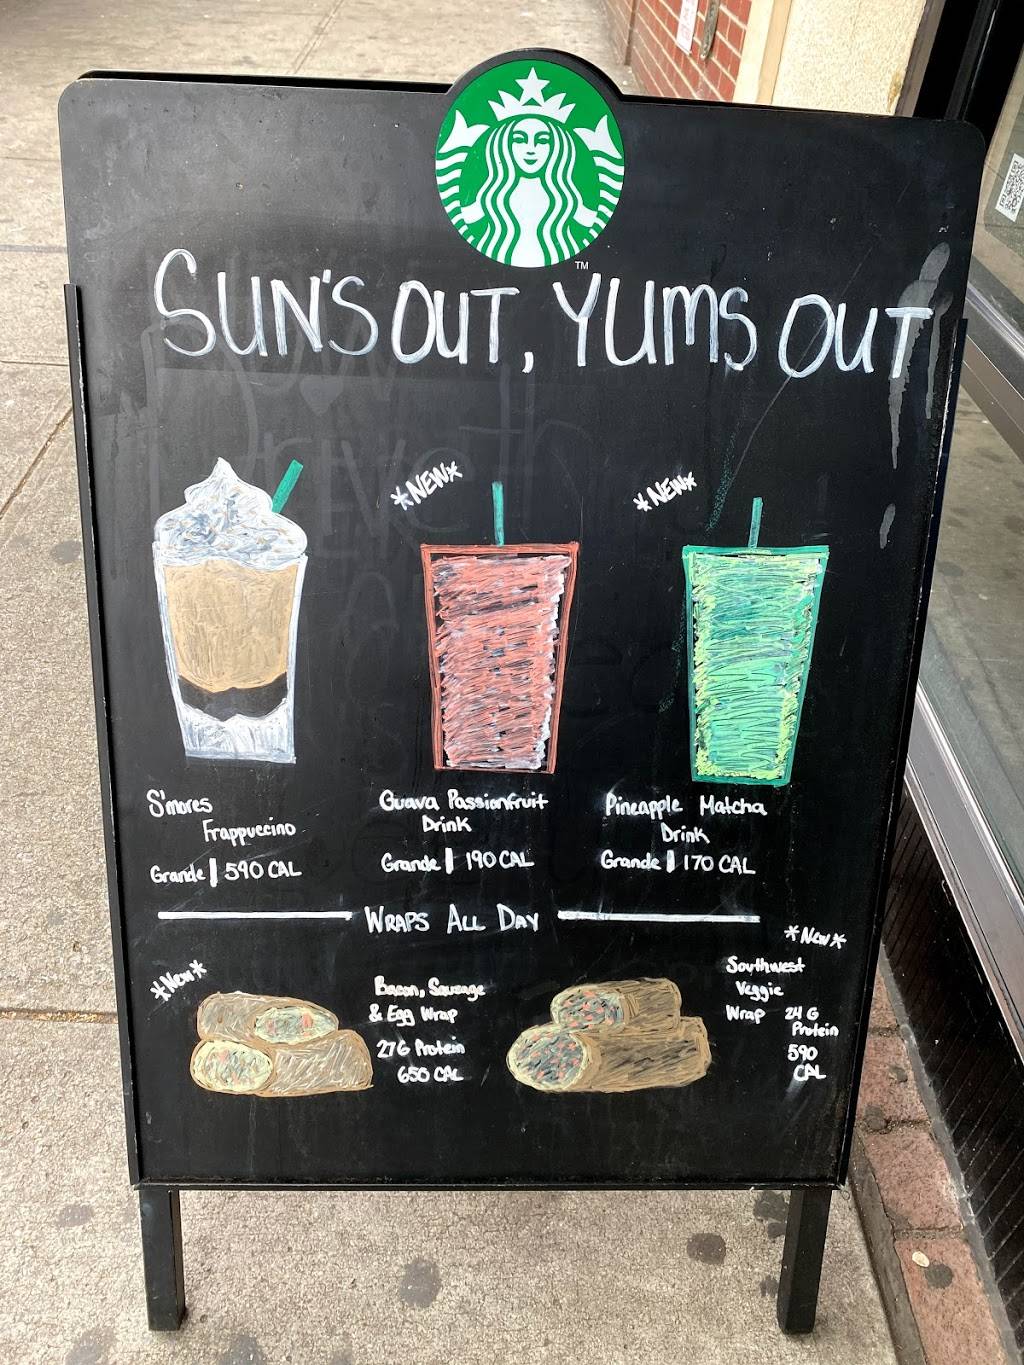 TM
SUN'S OUT, YUMS OUT
*NEW*
*NEW*
S'mores
Frappuccino
Grande | 590 CAL
Guava Passionfruit
Drink
Grande | 190 CAL
Pineapple Matcha
Drink
Grande | 170 CAL
WRAPS ALL DAY
*New*
Bacon, Sausage
& Egg Wrap
27G Protein
650 CAL
*New*
Southwest
Veggie
Wrap 24 G
Protein
590
CAL